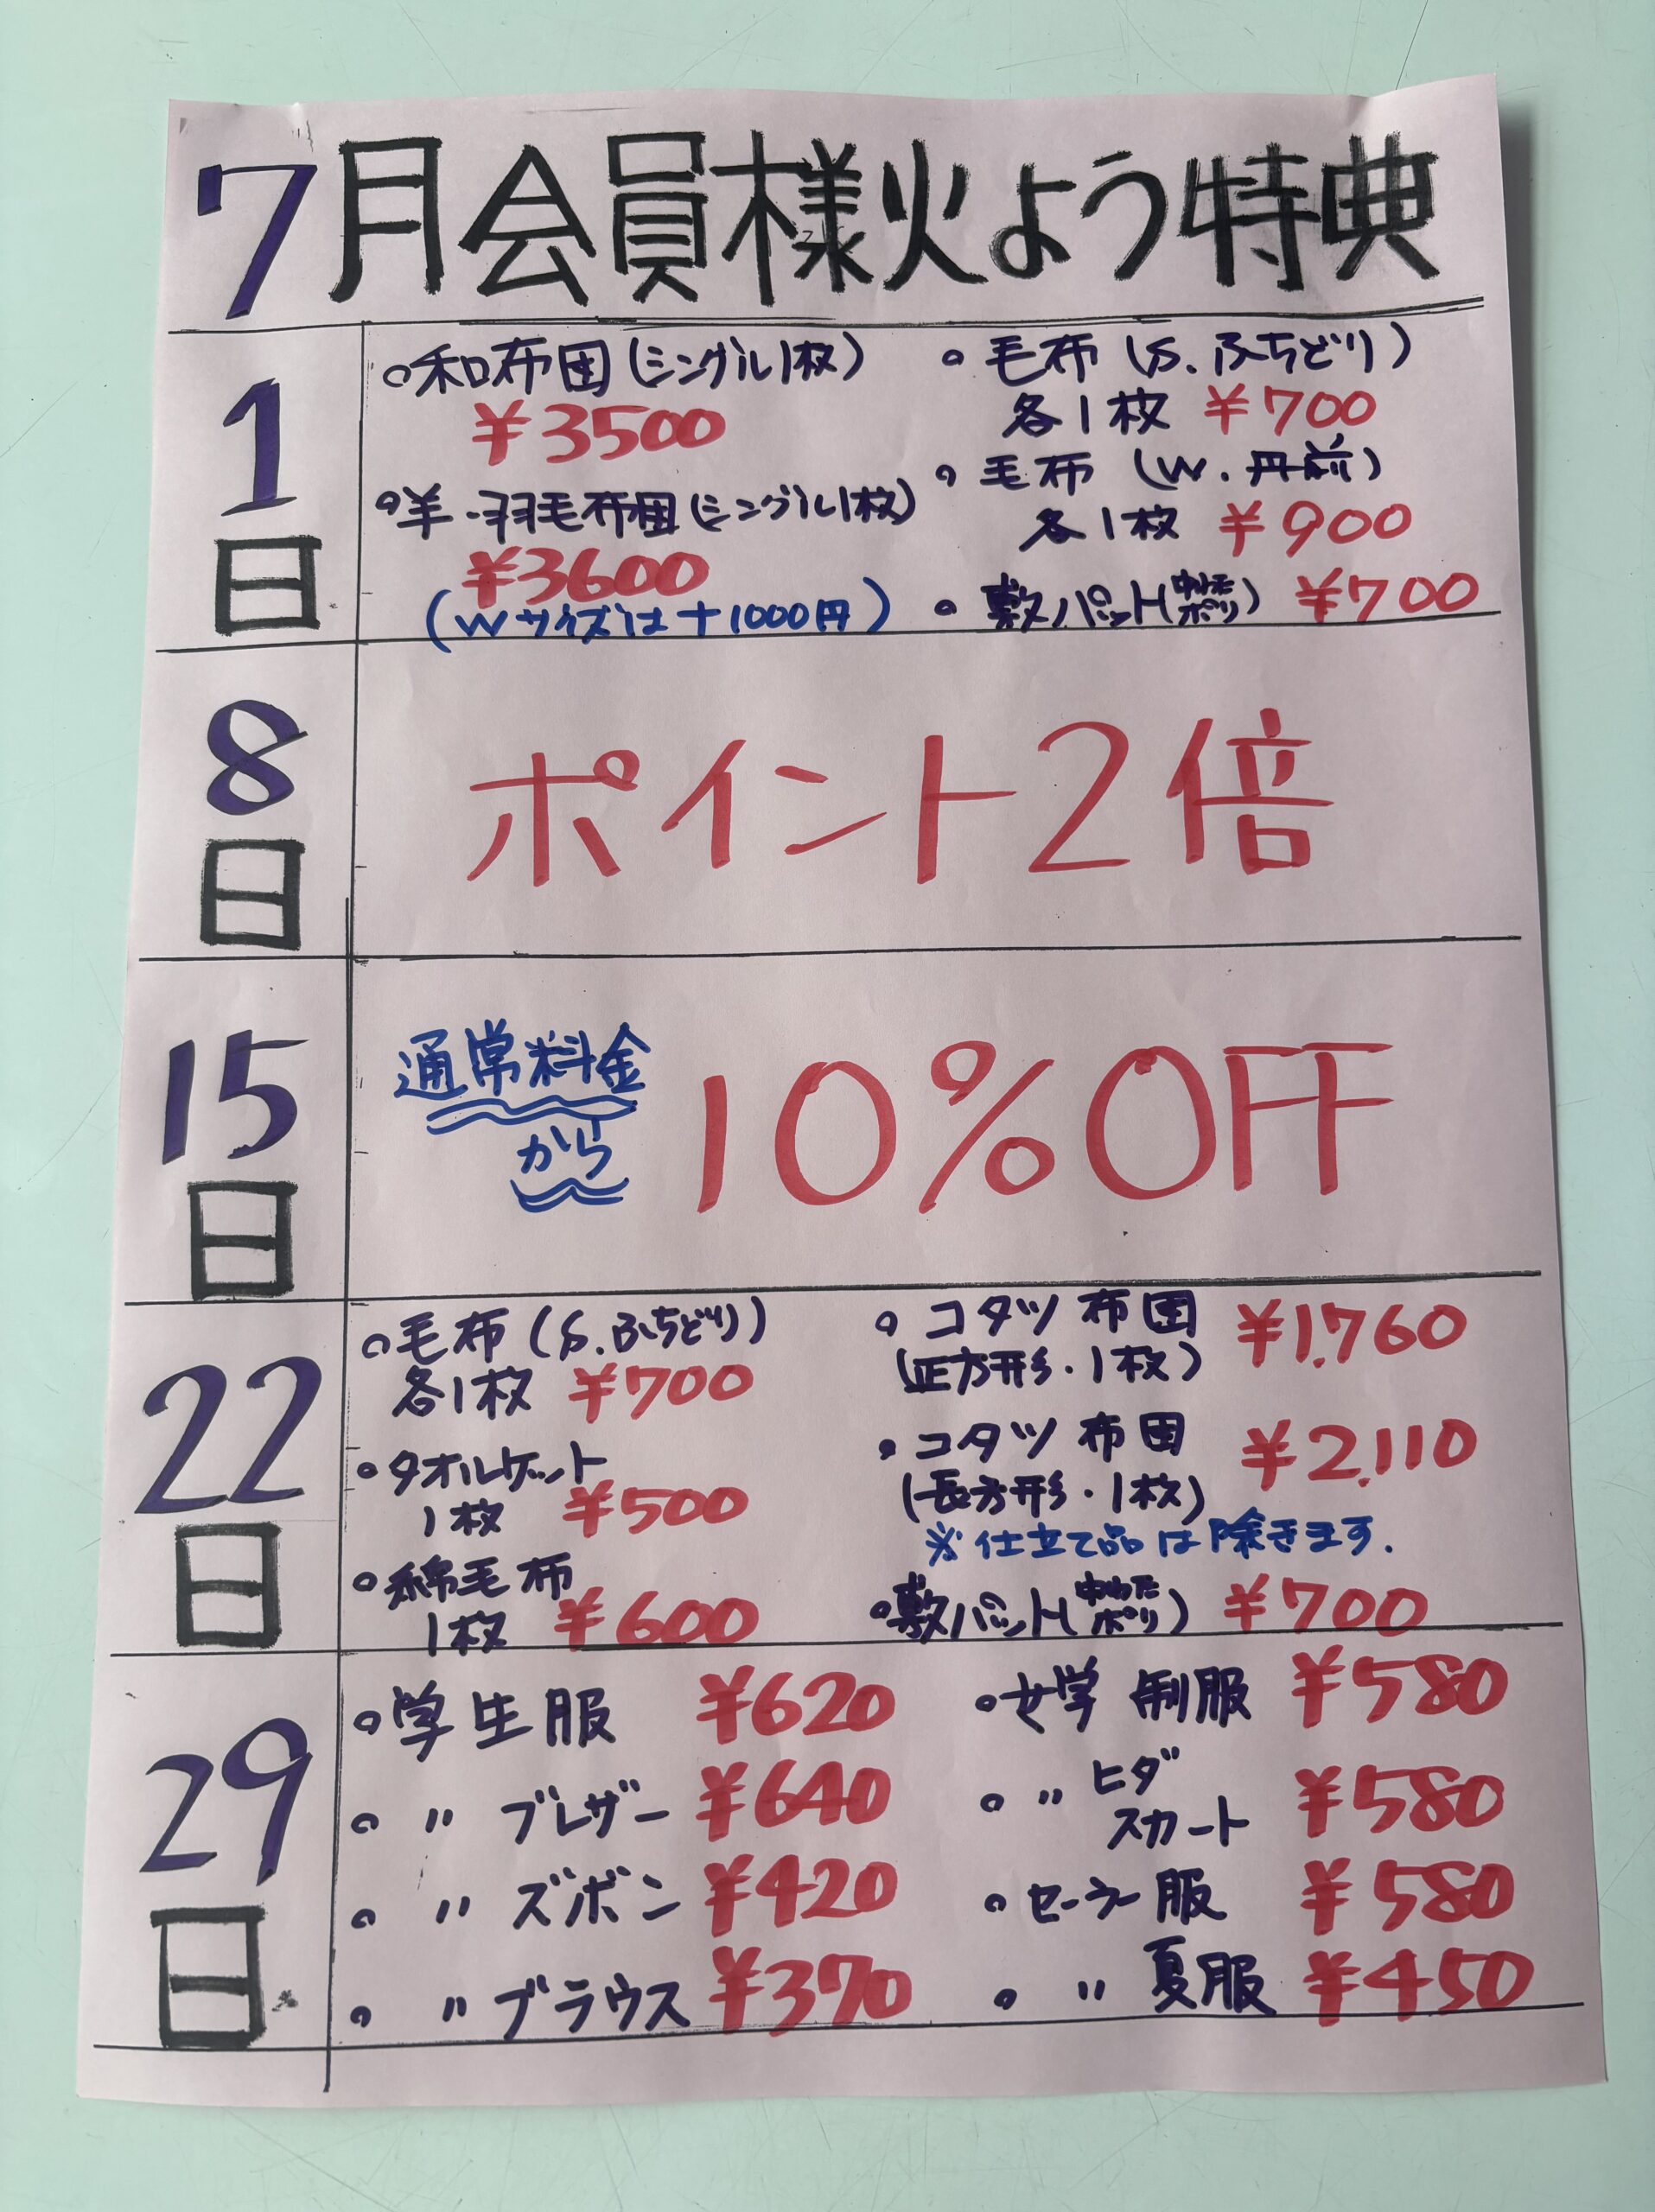 7月会員様火よう特典
1日
・和布団(シングル1枚)
¥3500
・羊・羽毛布団(シングル1枚)
¥3600
(Wサイズは+1000円)
・毛布(S.ふちどり)
各1枚 ¥700
・毛布(W.丹前)
各1枚 ¥900
・敷パット(中わたポリ) ¥700
8日
ポイント2倍
15日
通常料金
から
10%OFF
22日
・毛布(S.ふちどり)
各1枚 ¥700
・タオルケット
1枚 ¥500
・綿毛布
1枚 ¥600
・コタツ布団 ¥1,760
(正方形・1枚)
・コタツ布団 ¥2,110
(長方形・1枚)
※仕立て品は除きます.
・敷パット(中わたポリ) ¥700
29日
・学生服 ¥620
・〃 ブレザー ¥640
・〃 ズボン ¥420
・〃 ブラウス ¥370
・女学制服 ¥580
・〃 ヒダ
スカート ¥580
・セーラー服 ¥580
・〃 夏服 ¥450